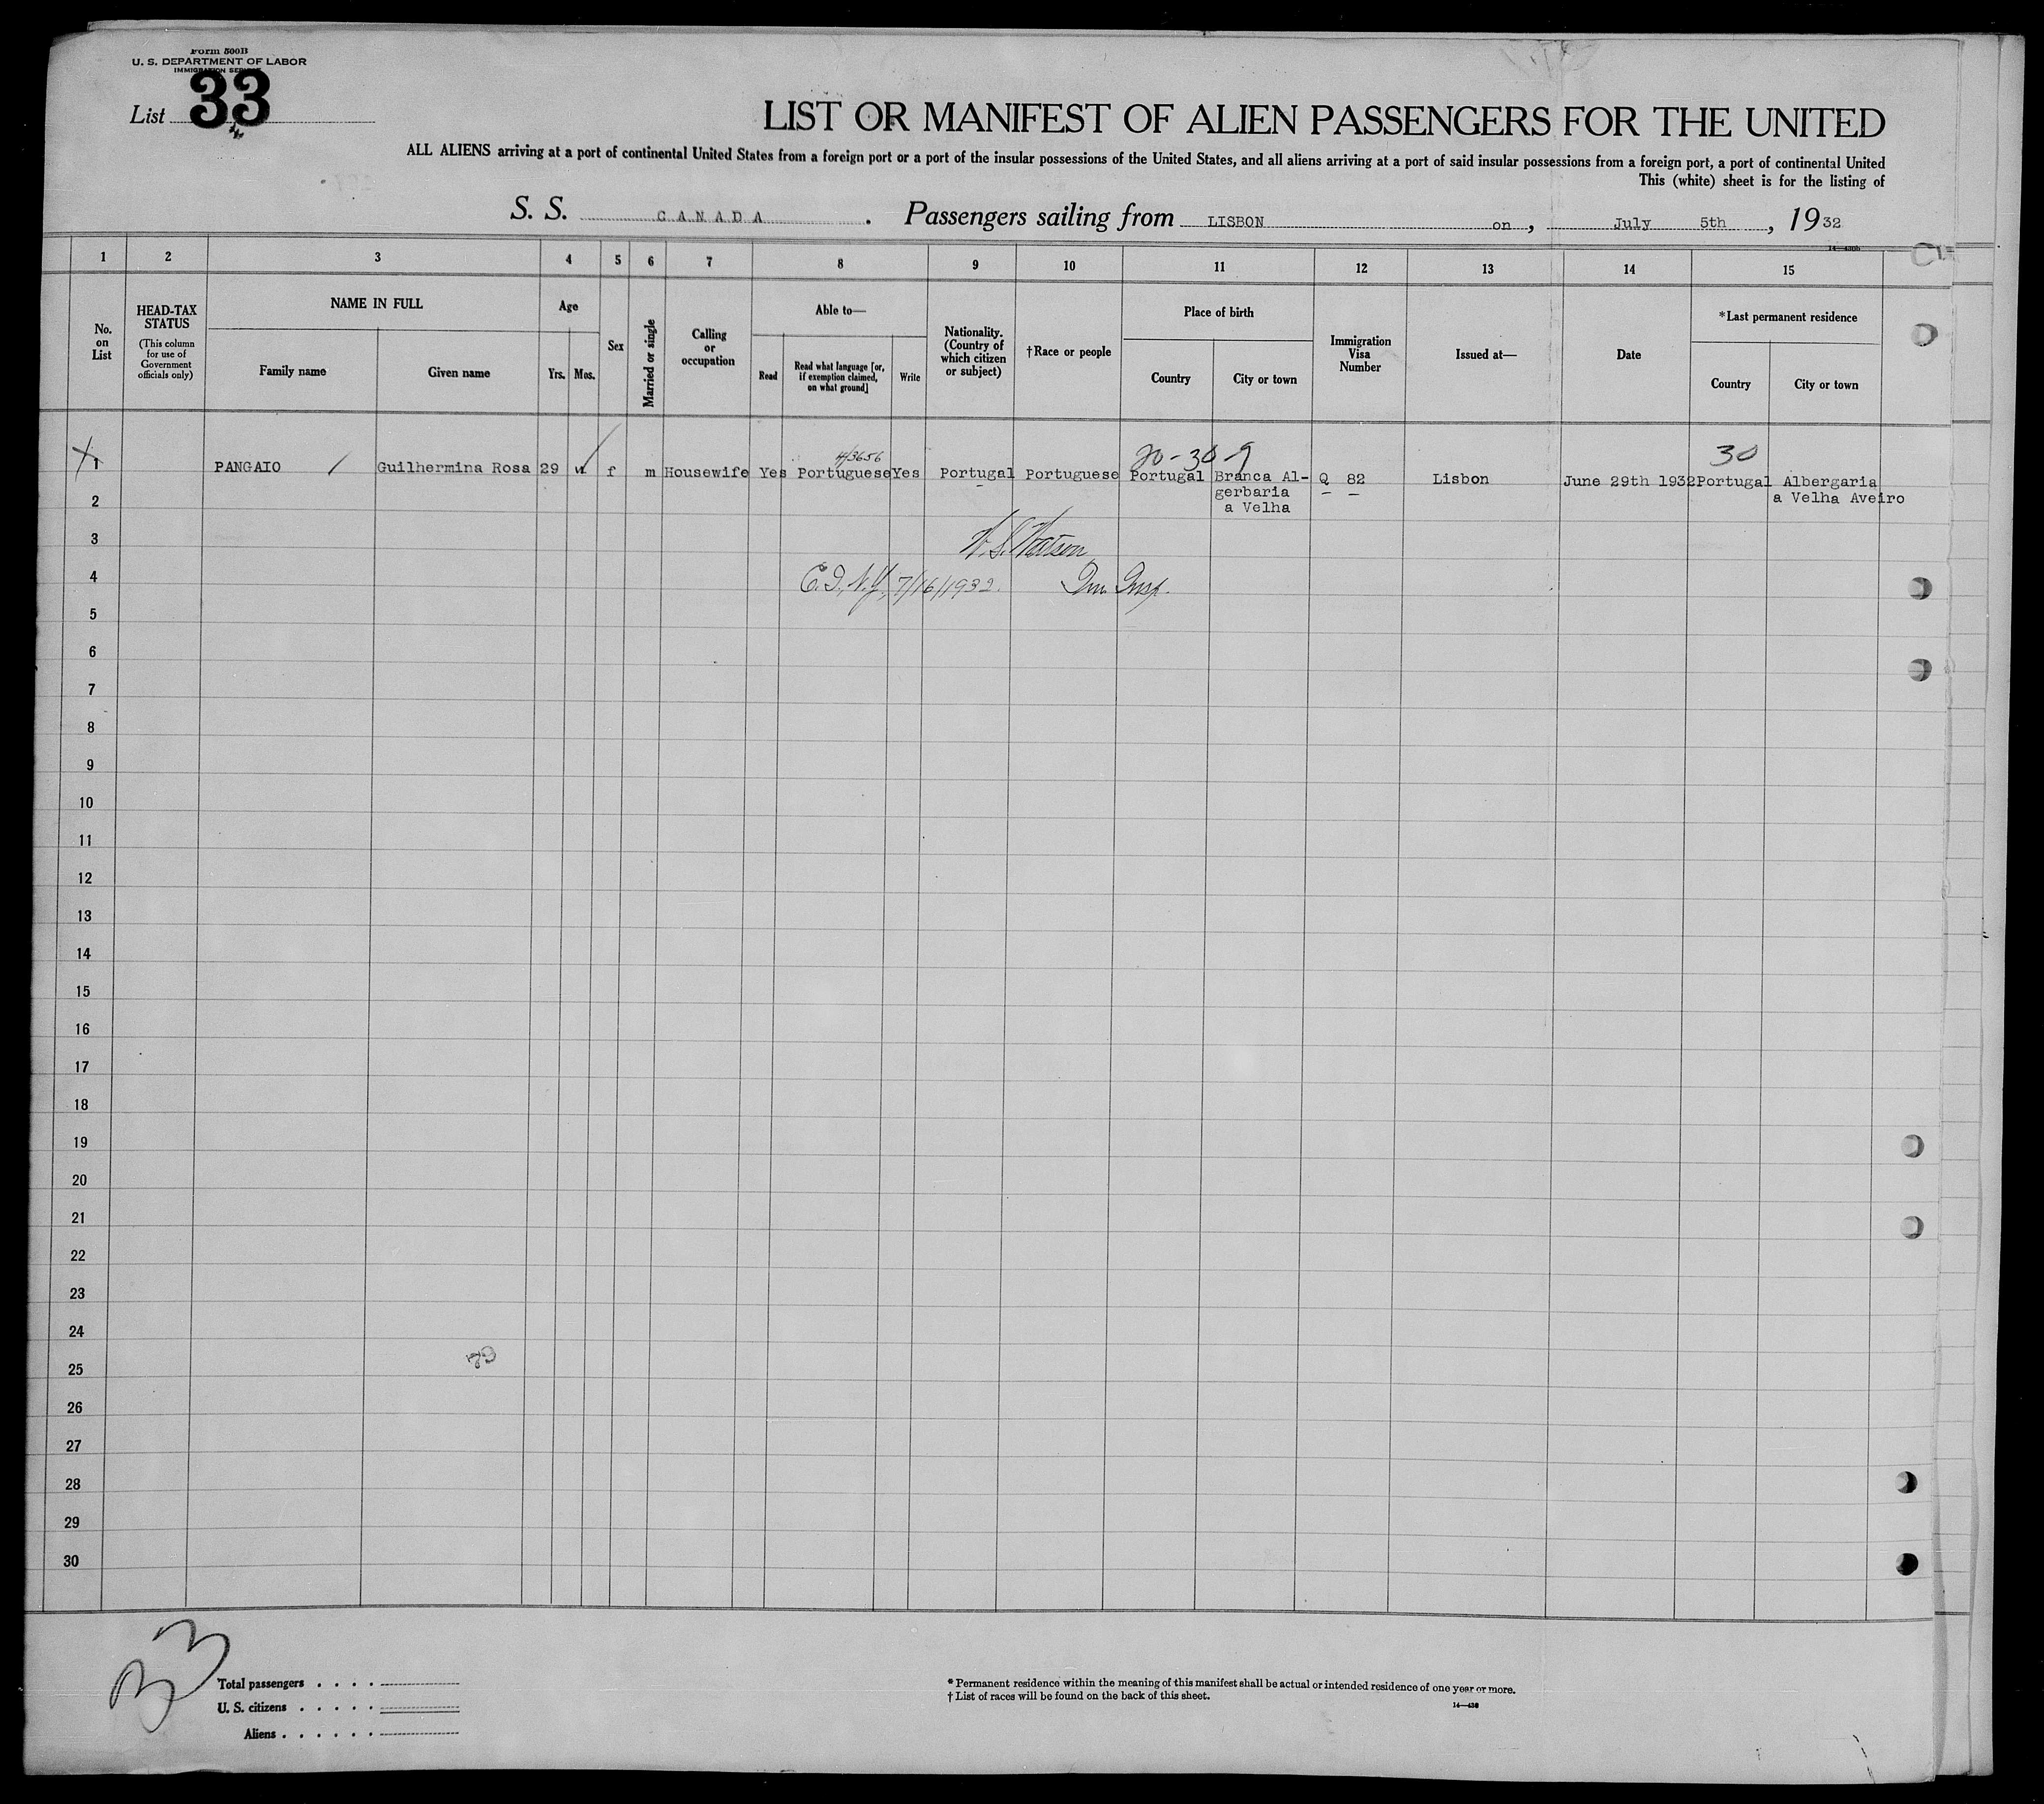 Form 500B
U. S. DEPARTMENT OF LABOR
IMMIGRATION SERVICE
List 33
4
LIST OR MANIFEST OF ALIEN PASSENGERS FOR THE UNITED
ALL ALIENS arriving at a port of continental United States from a foreign port or a port of the insular possessions of the United States, and all aliens arriving at a port of said insular possessions from a foreign port, a port of continental United
This (white) sheet is for the listing of
S. S. CANADA . Passengers sailing from LISBON on , July 5th , 1932
1 2 3 4 5 6 7 8 9 10 11 12 13 14 15
No. on List
HEAD-TAX STATUS
(This column for use of Government officials only)
NAME IN FULL
Family name
Given name
Age
Yrs.
Mos.
Sex
Married or single
Calling or occupation
Able to—
Read
Read what language [or, if exemption claimed, on what ground]
Write
Nationality. (Country of which citizen or subject)
†Race or people
Place of birth
Country
City or town
Immigration Visa Number
Issued at—
Date
*Last permanent residence
Country
City or town
#/3656 20-30-9 30
1 PANGAIO / Guilhermina Rosa 29 f m Housewife Yes Portuguese Yes Portugal Portuguese Portugal Branca Al- Q 82 Lisbon June 29th 1932 Portugal Albergaria
2 gerbaria a Velha Aveiro
a Velha
3 W. S. Watson
4 E.I., N.Y. 7/16/1932. Im. Insp.
5
6
7
8
9
10
11
12
13
14
15
16
17
18
19
20
21
22
23
24
25
26
27
28
29
30
33
Total passengers . . . .
U. S. citizens . . . . .
Aliens . . . . . .
* Permanent residence within the meaning of this manifest shall be actual or intended residence of one year or more.
† List of races will be found on the back of this sheet.